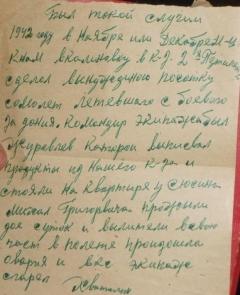 Был такой случии
1942 году в Ноября или Декабре М-ц
к нам в калиновку в к-з. 2-я
сделал вынужденую посатку
самолет летевшего с боевого
За дония. Командир экипажа был
журавлев которои выписал
продукты из Нашего к-за и
стояли на квартире у
Михаил Григоровича прожили
двое суток и вылители
в полете произошла
овария и вес экипаж
сгорел